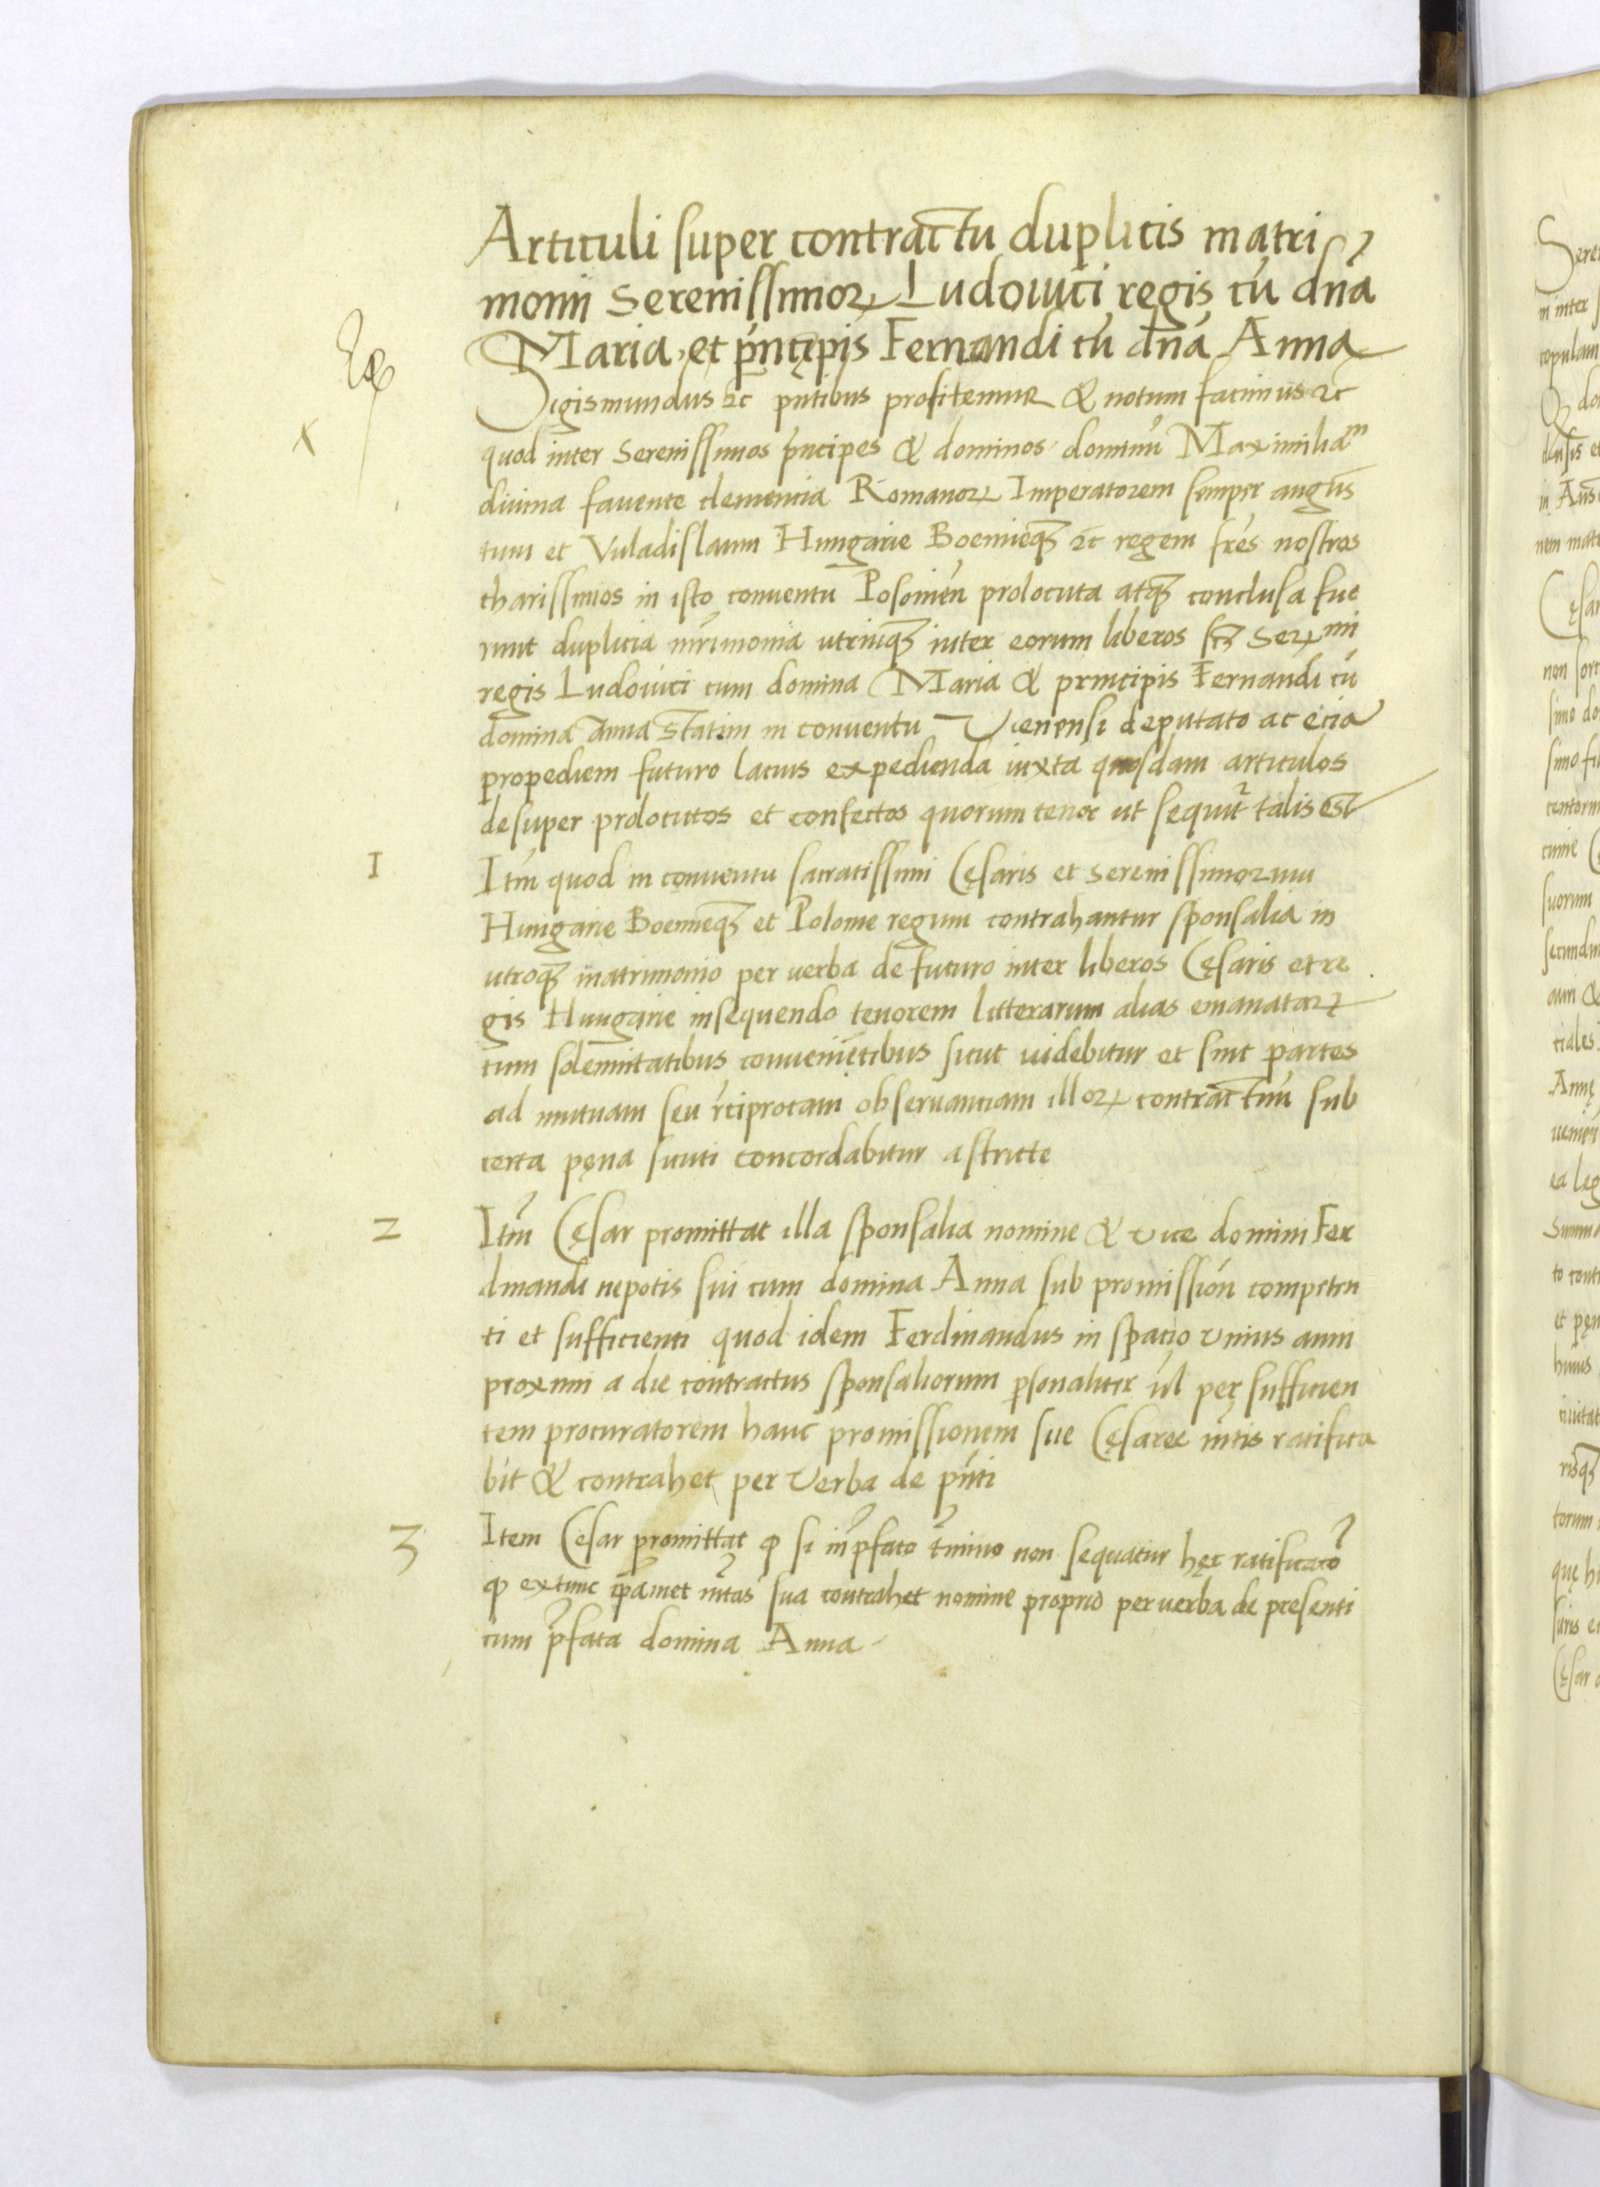 Articuli super contractu duplicis matri
monii Serenissimoꝝ Ludouici regis cū dnā
Maria, et pńcipis Fernandi cū dnā Anna
Sigismundus ⁊c pńtibus profitemur & notum facimus ⁊c
quod inter Serenissimos pńcipes & dominos dominū Maximiliaᵐ
diuina fauente clementia Romanoꝝ Imperatorem semper augus
tum et Vuladislaum Hungarie Boemieqꝫ ⁊c regem fres nostros
charissimos in isto conuentu Posonień prolocuta atqꝫ conclusa fue
runt duplicia mrimonia utriusqꝫ inter eorum liberos scꝫ Serᵐⁱ
regis Ludouici cum domina Maria & principis Fernandi cū
domina Anna statim in conuentu Vienensi deputato ac ecia
propediem futuro lacius expedienda iuxta quosdam articulos
desuper prolocutos et confectos quorum tenor ut sequit talis est
1 Itm quod in conuentu sacratissimi Cęsaris et Serenissimorum
Hungarie Boemieqꝫ et Polonie regum contrahantur sponsalia in
utroqꝫ matrimonio per uerba de futuro inter liberos Cęsaris et re
gis Hungarie insequendo tenorem litterarum alias emanataꝝ
cum solemnitatibus conuenietibus sicut uidebitur et sint partes
ad mutuam seu rciprocam obseruantiam illoꝝ contractuū sub
certa pęna sicuti concordabitur astricte
2 Itm Cęsar promittat illa sponsalia nomine & vice domini Fer
dinandi nepotis sui cum domina Anna sub promissioń competen
ti et sufficienti quod idem Ferdinandus in spacio vnius anni
proximi a die contractus sponsaliorum psonaliter úl per sufficien
tem procuratorem hanc promissionem sue Cęsaree mtis ratifica
bit & contrahet per verba de pńti
3 Item Cesar promittat ꝙ si in pfato tmino non sequatur hęc ratificatō
ꝙ extunc ipamet mtas sua contrahet nomine proprio per uerba de presenti
cum pfata domina Anna